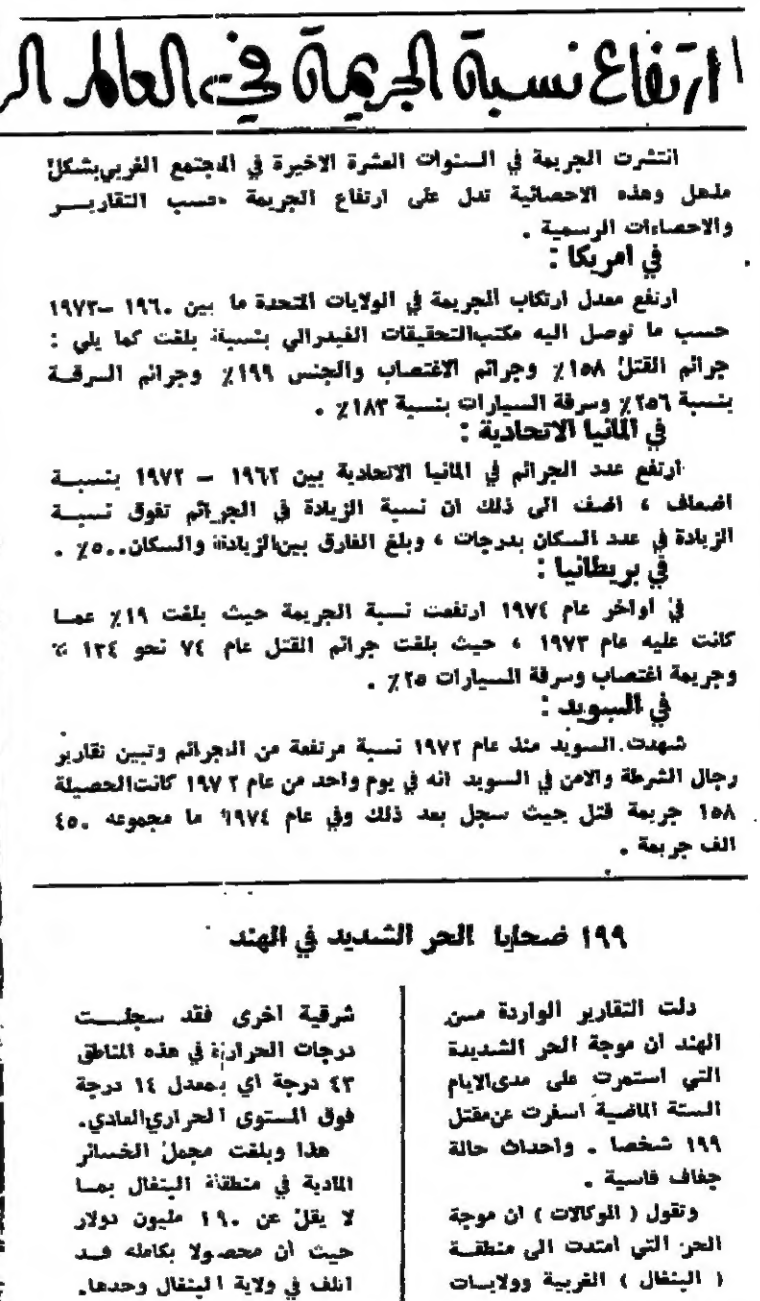 ارتفاع نسبة الجريمة في العالم
انتشرت الجريمة في السنوات العشرة الاخيرة في المجتمع الغربي بشكل
مذهل وهذه الاحصائية تدل على ارتفاع الجريمة حسب التقاريـــر
والاحصاءات الرسمية .
في امريكا :
ارتفع معدل ارتكاب الجريمة في الولايات المتحدة ما بين ١٩٦٠ – ١٩٧٣
حسب ما توصل اليه مكتب التحقيقات الفيدرالي بنسبة بلغت كما يلي :
جرائم القتل ١٥٨٪ وجرائم الاغتصاب والجنس ١٩٩٪ وجرائم السرقــة
بنسبة ٢٥٦٪ وسرقة السيارات بنسبة ١٨٣٪ .
في المانيا الاتحادية :
ارتفع عدد الجرائم في المانيا الاتحادية بين ١٩٦٢ – ١٩٧٢ بنسبــة
اضعاف ، اضف الى ذلك ان نسبة الزيادة في الجرائم تفوق نسبــة
الزيادة في عدد السكان بدرجات ، وبلغ الفارق بين الزيادة والسكان ٥٠٠٪ .
في بريطانيا :
في اواخر عام ١٩٧٤ ارتفعت نسبة الجريمة حيث بلغت ١٩٪ عمــا
كانت عليه عام ١٩٧٣ ، حيث بلغت جرائم القتل عام ٧٤ نحو ١٣٤ ٪
وجريمة اغتصاب وسرقة السيارات ٢٥٪ .
في السويد :
شهدت السويد منذ عام ١٩٧٢ نسبة مرتفعة من الجرائم وتبين تقارير
رجال الشرطة والامن في السويد انه في يوم واحد من عام ١٩٧٢ كانت الحصيلة
١٥٨ جريمة قتل حيث سجل بعد ذلك وفي عام ١٩٧٤ ما مجموعه ٤٥٠
الف جريمة .
١٩٩ ضحايا الحر الشديد في الهند
دلت التقارير الواردة مــن
الهند ان موجة الحر الشديدة
التي استمرت على مدى الايام
الستة الماضية اسفرت عن مقتل
١٩٩ شخصا . واحداث حالة
جفاف قاسية .
وتقول ( الوكالات ) ان موجة
الحر التي امتدت الى منطقــة
( البنغال ) الغربية وولايــات
شرقية اخرى فقد سجلــــت
درجات الحرارة في هذه المناطق
٤٣ درجة اي بمعدل ١٤ درجة
فوق المستوى الحراري العادي.
هذا وبلغت مجمل الخسائر
المادية في منطقة البنغال بمــا
لا يقل عن ١٩٠ مليون دولار
حيث أن محصولا بكامله قــد
اتلف في ولاية البنغال وحدها.